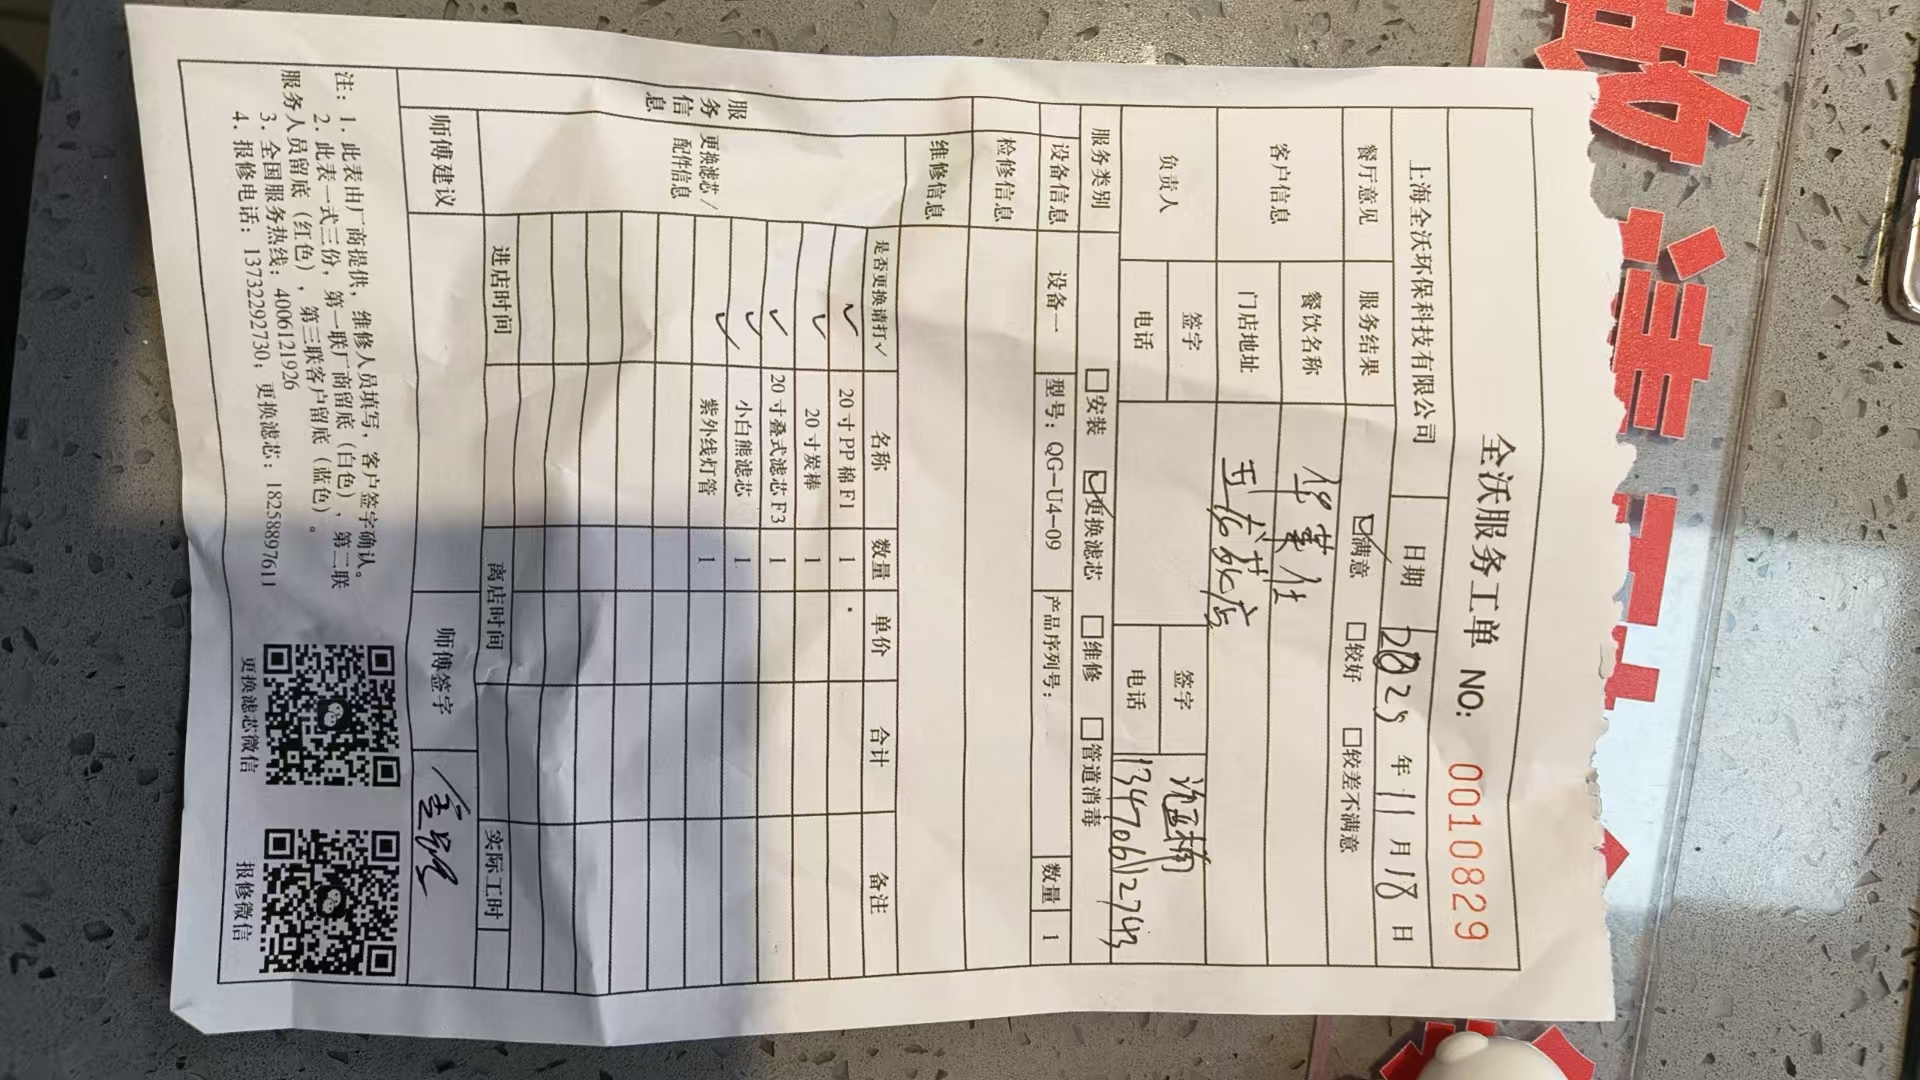 全沃服务工单 NO: 00108829
上海全沃环保科技有限公司 日期 2025 年 11 月 18 日
餐厅意见 服务结果 ☑满意 □较好 □较差不满意
客户信息 餐饮名称 华莱仕
门店地址
负责人 签字 签字
电话 电话 13470612743
服务类别 □安装 ☑更换滤芯 □维修 □管道消毒
设备信息 设备一 型号：QG-U4-09 产品序列号： 数量 1
检修信息
维修信息
服务信息
更换滤芯/配件信息
是否更换请打✓ 名称 数量 单价 合计 备注
✓ 20寸PP棉F1 1
✓ 20寸炭棒 1
✓ 20寸叠式滤芯F3 1
✓ 小白熊滤芯 1
✓ 紫外线灯管 1
进店时间 离店时间 实际工时
师傅建议 师傅签字
注：1. 此表由厂商提供，维修人员填写，客户签字确认。
2. 此表一式三份，第一联厂商留底（白色），第二联
服务人员留底（红色），第三联客户留底（蓝色）。
3. 全国服务热线：4006121926
4. 报修电话：13732292730；更换滤芯：18258897611
更换滤芯微信 报修微信